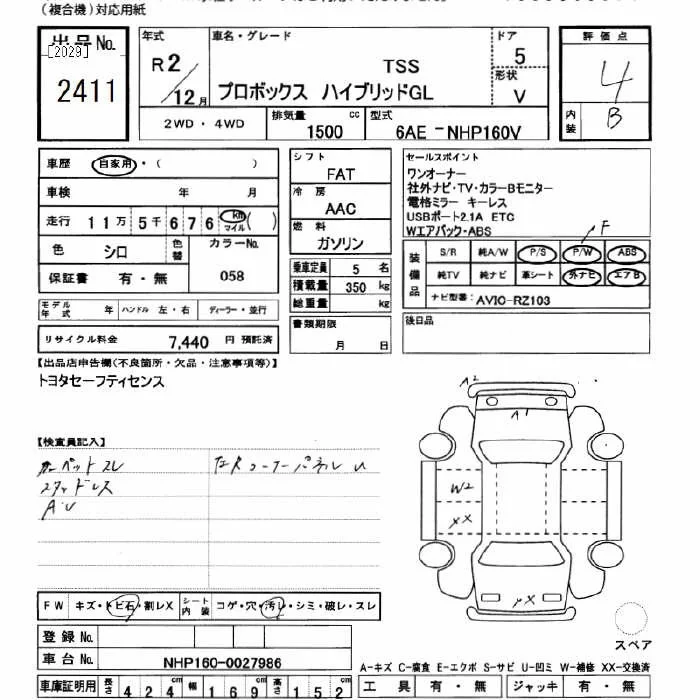 (複合機)対応用紙
出品No.
[2029]
2411
年式
R2/12月
車名・グレード
TSS
プロボックス ハイブリッドGL
ドア
5
形状
V
評価点
4
内装
B
2WD・4WD
排気量
1500 cc
型式
6AE -NHP160V
車歴 自家用・( )
車検 年 月
走行 11万5千676 km マイル ( )
色 シロ 色替 カラーNo. 058
保証書 有・無
モデル年式 年 ハンドル 左・右 ディーラー・並行
リサイクル料金 7,440 円 預託済
シフト
FAT
冷房
AAC
燃料
ガソリン
乗車定員 5 名
積載量 350 kg
総重量 kg
書類期限
月 日
セールスポイント
ワンオーナー
社外ナビ・TV・カラーBモニター
電格ミラー キーレス
USBポート2.1A ETC
Wエアバック・ABS
F
装備品
S/R 純A/W P/S P/W ABS
純TV 純ナビ 革シート 外ナビ エアB
ナビ型番: AVIC-RZ103
後日品
【出品店申告欄(不良箇所・欠品・注意事項等)】
トヨタセーフティセンス
【検査員記入】
カーペットスレ
スタッドレス
AU
左Rコーナーパネル U
A2
A1
W2
XX
XX
スペア
FW キズ・トビ石・割レX シート内装 コゲ・穴・汚レ・シミ・破レ・スレ
登録No.
車台No. NHP160-0027986
車庫証明用 長さ 424cm 幅 169cm 高さ 152cm
A-キズ C-腐食 E-エクボ S-サビ U-凹ミ W-補修 XX-交換済
工具 有・無 ジャッキ 有・無